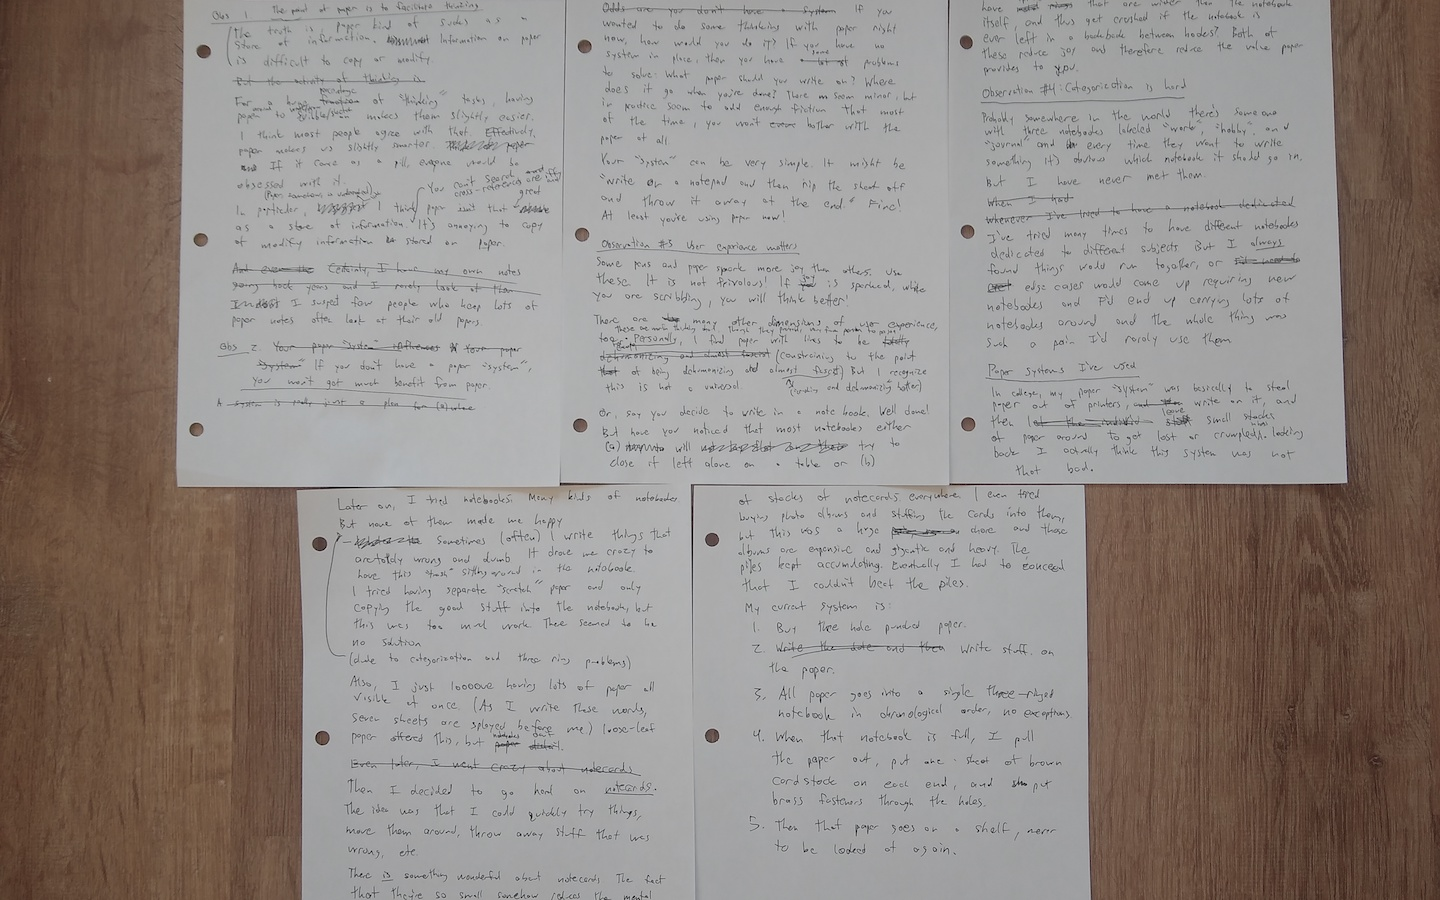 Obs 1 The point of paper is to facilitate thinking
The truth is, paper kind of sucks as a
store of information. Information on paper
is difficult to copy or modify
But the activity of thinking is
For a huge percentage of "thinking" tasks, having
paper to scribble on makes them slightly easier.
I think most people agree with that. Effectively,
paper makes us slightly smarter.
If it came as a pill, everyone would be
obsessed with it.
You can't search
cross-references are iffy
In particular, I think paper isn't that great
as a store of information. It's annoying to copy
or modify information stored on paper.
And even the Certainly, I have my own notes
going back years and I rarely look at them
I suspect few people who keep lots of
paper notes often look at their old papers.
Obs 2. Your paper "system" influences Your paper
"system" If you don't have a paper "system",
you won't get much benefit from paper.
A system is really just a plan for
Odds are you don't have a system If you
wanted to do some thinking with paper right
now, how would you do it? If you have no
system in place, then you have some problems
to solve: What paper should you write on? Where
does it go when you're done? These seem minor, but
in practice seem to add enough friction that most
of the time, you won't even bother with the
paper at all
Your "system" can be very simple. It might be
"write on a notepad and then rip the sheet off
and throw it away at the end." Fine!
At least you're using paper now!
Observation #3 User experience matters
Some pens and paper spark more joy than others. Use
these. It is not frivolous! If joy is sparked, while
you are scribbling, you will think better!
There are many other dimensions of user experience,
too. Personally, I find paper with lines to be
dehumanizing and almost fascist (constraining to the point
of being dehumanizing and almost fascist) But I recognize
this is not a universal.
Or, say you decide to write in a notebook. Well done!
But have you noticed that most notebooks either
(a) will try to
close if left alone on a table or (b)
have that are wider than the notebook
itself, and thus get crushed if the notebook is
ever left in a backpack between bodies? Both of
these reduce joy and therefore reduce the value paper
provides to you.
Observation #4: Categorization is hard
Probably somewhere in the world there's someone
with three notebooks labeled "work", "hobby", and
"journal" and every time they want to write
something it's obvious which notebook it should go in.
But I have never met them.
When I had
Whenever I've tried to have a notebook dedicated
I've tried many times to have different notebooks
dedicated to different subjects But I always
found things would run together, or
edge cases would come up requiring new
notebooks and I'd end up carrying lots of
notebooks around and the whole thing was
such a pain I'd rarely use them
Paper Systems I've used
In college, my paper "system" was basically to steal
paper out of printers, write on it, and
then leave small stacks
of paper around to get lost or crumpled. looking
back I actually think this system was not
that bad.
Later on, I tried notebooks. Many kinds of notebooks
But none of them made me happy
- Sometimes (often) I write things that
are totally wrong and dumb It drove me crazy to
have this "trash" sitting around in the notebook.
I tried having separate "scratch" paper and only
copying the good stuff into the notebook, but
this was too much work There seemed to be
no solution
(due to categorization and three ring problems)
Also, I just looooove having lots of paper all
visible at once (As I write these words,
seven sheets are splayed before me.) loose-leaf
paper offered this, but notebooks don't.
Even later, I went crazy about notecards
Then I decided to go hard on notecards.
The idea was that I could quickly try things,
move them around, throw away stuff that was
wrong, etc.
There is something wonderful about notecards The fact
that they're so small somehow reduces the mental
of stacks of notecards everywhere I even tried
buying photo albums and stuffing the cards into them,
but this was a huge chore and those
albums are expensive and gigantic and heavy. The
piles kept accumulating. Eventually I had to concede
that I couldn't beat the piles.
My current system is:
1. Buy three hole punched paper.
2. Write the date and then Write stuff. on
the paper.
3. All paper goes into a single three-ringed
notebook in chronological order, no exceptions
4. When that notebook is full, I pull
the paper out, put one sheet of brown
cardstock on each end, and put
brass fasteners through the holes.
5. Then that paper goes on a shelf, never
to be looked at again.